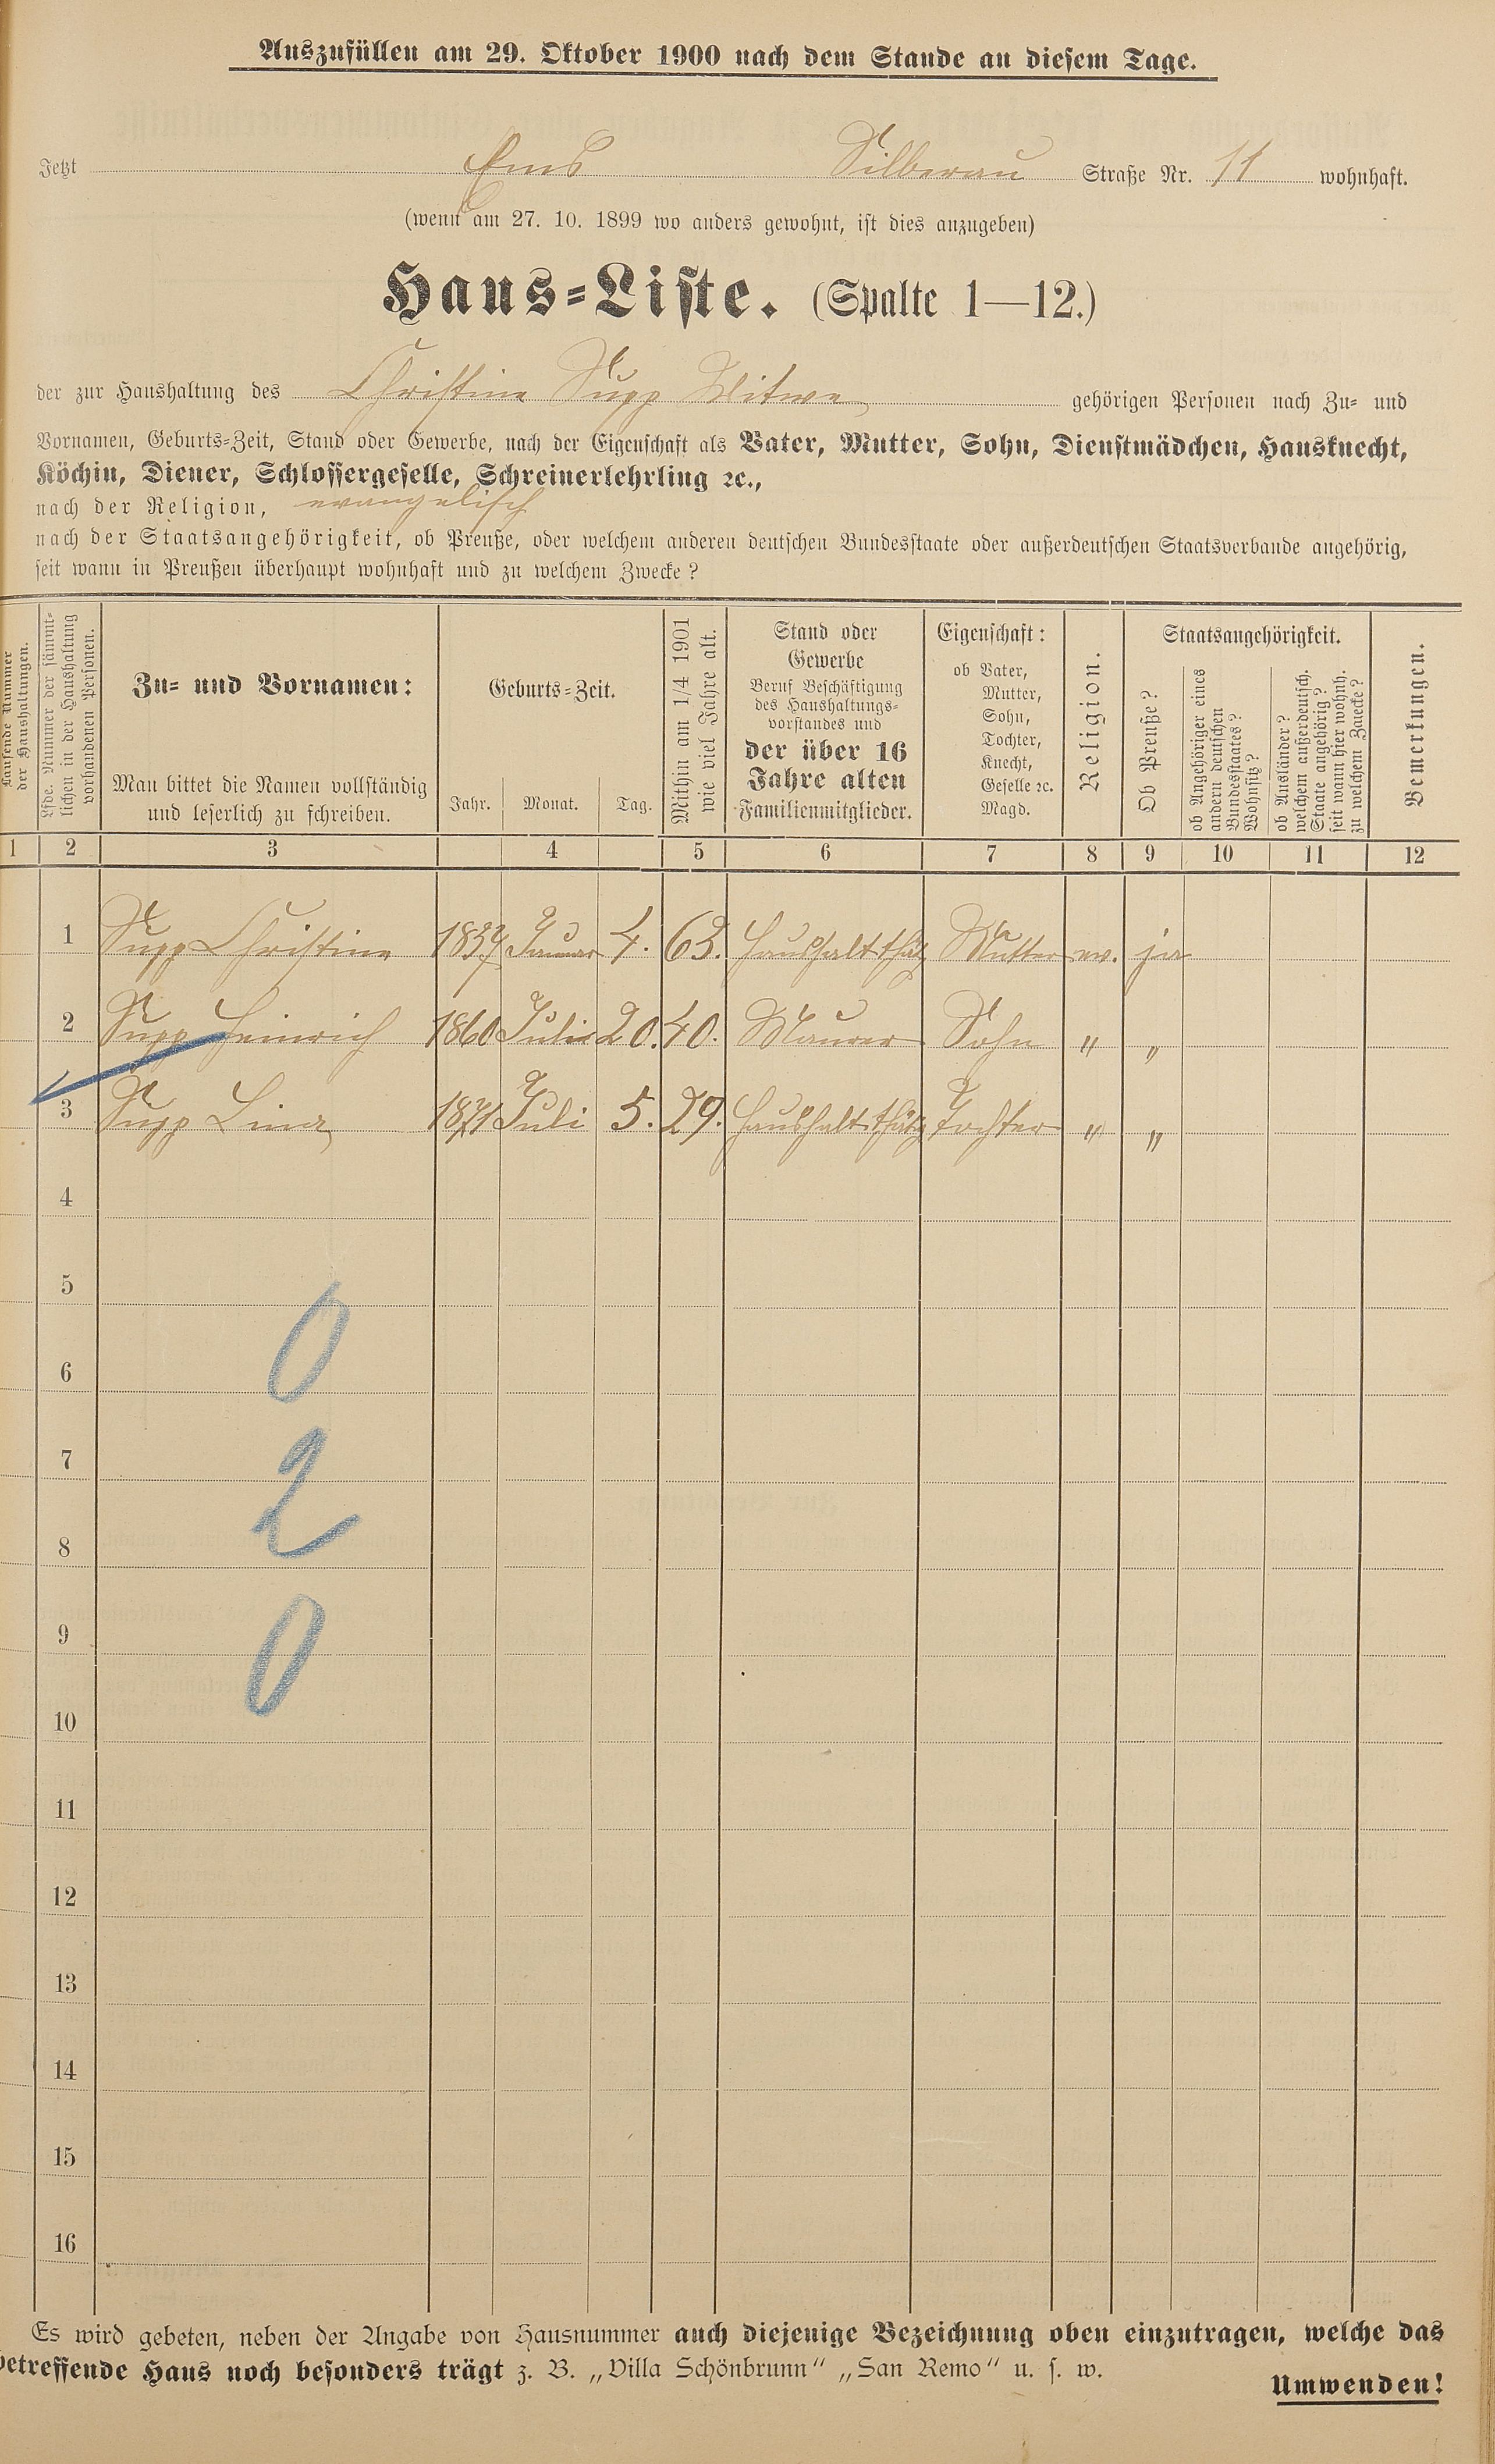 Auszufüllen am 29. Oktober 1900 nach dem Stande an diesem Tage.
Jetzt Ems Silberau Straße Nr. 11 wohnhaft.
(wenn am 27. 10. 1899 wo anders gewohnt, ist dies anzugeben)
Haus-Liste. (Spalte 1—12.)
der zur Haushaltung des Christine Supp Witwe gehörigen Personen nach Zu- und
Vornamen, Geburts-Zeit, Stand oder Gewerbe, nach der Eigenschaft als Vater, Mutter, Sohn, Dienstmädchen, Hausknecht,
Köchin, Diener, Schlossergeselle, Schreinerlehrling ꝛc.,
nach der Religion, evangelisch
nach der Staatsangehörigkeit, ob Preuße, oder welchem anderen deutschen Bundesstaate oder außerdeutschen Staatsverbande angehörig,
seit wann in Preußen überhaupt wohnhaft und zu welchem Zwecke?
Laufende Nummer
der Haushaltungen.
Lfde. Nummer der sämmt-
lichen in der Haushaltung
vorhandenen Personen.
Zu- und Vornamen:
Man bittet die Namen vollständig
und leserlich zu schreiben.
Geburts-Zeit.
Jahr. Monat. Tag.
Mithin am 1/4 1901
wie viel Jahre alt.
Stand oder
Gewerbe
Beruf Beschäftigung
des Haushaltungs-
vorstandes und
der über 16
Jahre alten
Familienmitglieder.
Eigenschaft:
ob Vater,
Mutter,
Sohn,
Tochter,
Knecht,
Geselle ꝛc.
Magd.
Religion.
Staatsangehörigkeit.
Ob Preuße?
ob Angehöriger eines
andern deutschen
Bundesstaates?
Wohnsitz?
ob Ausländer?
welchem außerdeutsch.
Staate angehörig?
seit wann hier wohnh.
zu welchem Zwecke?
Bemerkungen.
1 2 3 4 5 6 7 8 9 10 11 12
1 Supp Christine 1837 Januar 4. 63. Haushaltthätg Mutter ev. ja
2 Supp Heinrich 1860 Juli 20. 40. Maurer Sohn " "
3 Supp Lina 1871 Juli 5. 29. Haushaltthätg Tochter " "
4
5
0
6
7
2
8
9
0
10
11
12
13
14
15
16
Es wird gebeten, neben der Angabe von Hausnummer auch diejenige Bezeichnung oben einzutragen, welche das
betreffende Haus noch besonders trägt z. B. „Villa Schönbrunn“ „San Remo“ u. s. w.
Umwenden!